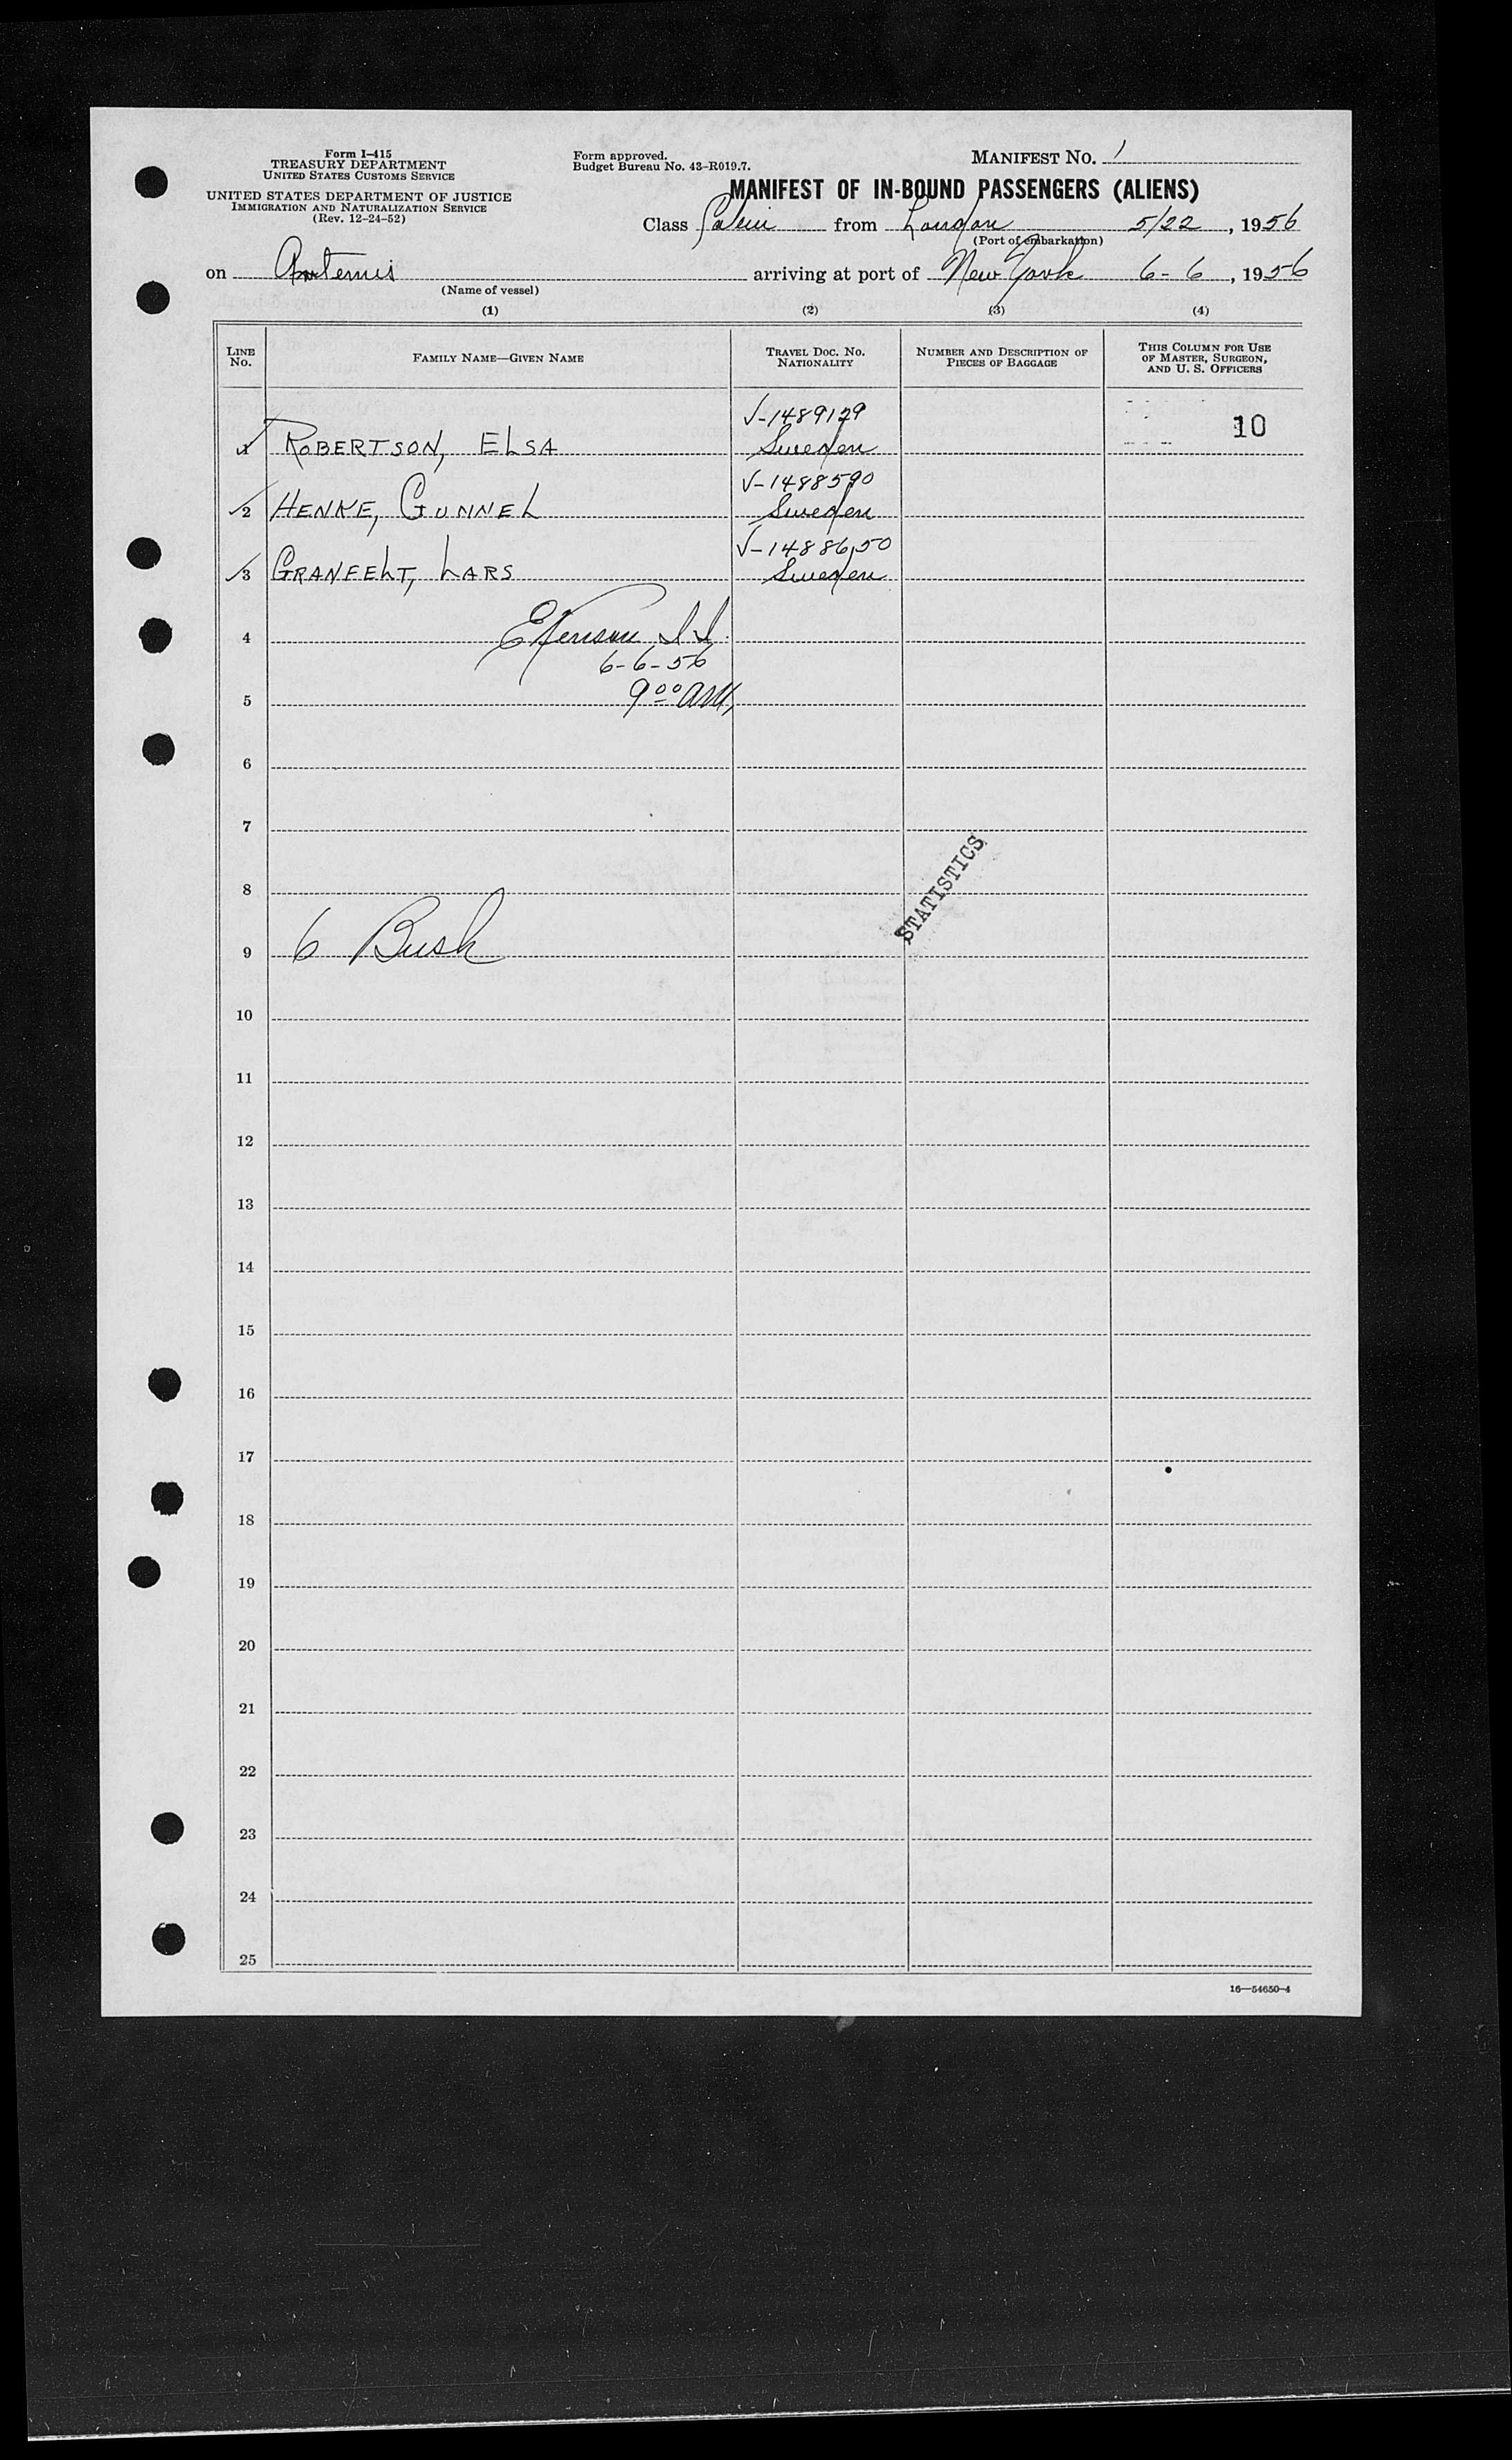 Form I-415
TREASURY DEPARTMENT
UNITED STATES CUSTOMS SERVICE
UNITED STATES DEPARTMENT OF JUSTICE
IMMIGRATION AND NATURALIZATION SERVICE
(Rev. 12-24-52)
Form approved.
Budget Bureau No. 43-R019.7.
MANIFEST NO. 1
MANIFEST OF IN-BOUND PASSENGERS (ALIENS)
Class from London 5/22, 1956
(Port of embarkation)
on Artemis arriving at port of New York 6-6, 1956
(Name of vessel)
(1) (2) (3) (4)
LINE NO. FAMILY NAME—GIVEN NAME TRAVEL DOC. NO. NATIONALITY NUMBER AND DESCRIPTION OF PIECES OF BAGGAGE THIS COLUMN FOR USE OF MASTER, SURGEON, AND U. S. OFFICERS
V-1489129
10
1 ROBERTSON, ELSA Sweden
V-1488590
2 HENKE, GUNNEL Sweden
V-1488650
3 GRANFELT, LARS Sweden
4
6-6-56
5 9 00 AM,
6
7
STATISTICS
8
9 6 Bush
10
11
12
13
14
15
16
17
18
19
20
21
22
23
24
25
16—54650-4